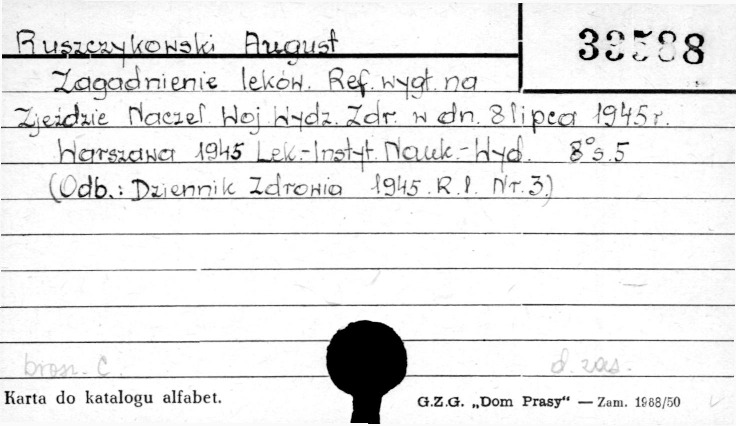 Ruszczykowski August
33588
Zagadnienie leków. Ref. wygł. na
Zjeździe Naczel. Woj. Wydz. Zdr. w dn. 8 lipca 1945 r.
Warszawa 1945 Lek.-Instyt. Nauk.-Wyd. 8° s. 5
(Odb.: Dziennik Zdrowia 1945. R. I. Nr. 3.)
brosz. C.
d. zas.
Karta do katalogu alfabet.
G.Z.G. „Dom Prasy“ — Zam. 1968/50